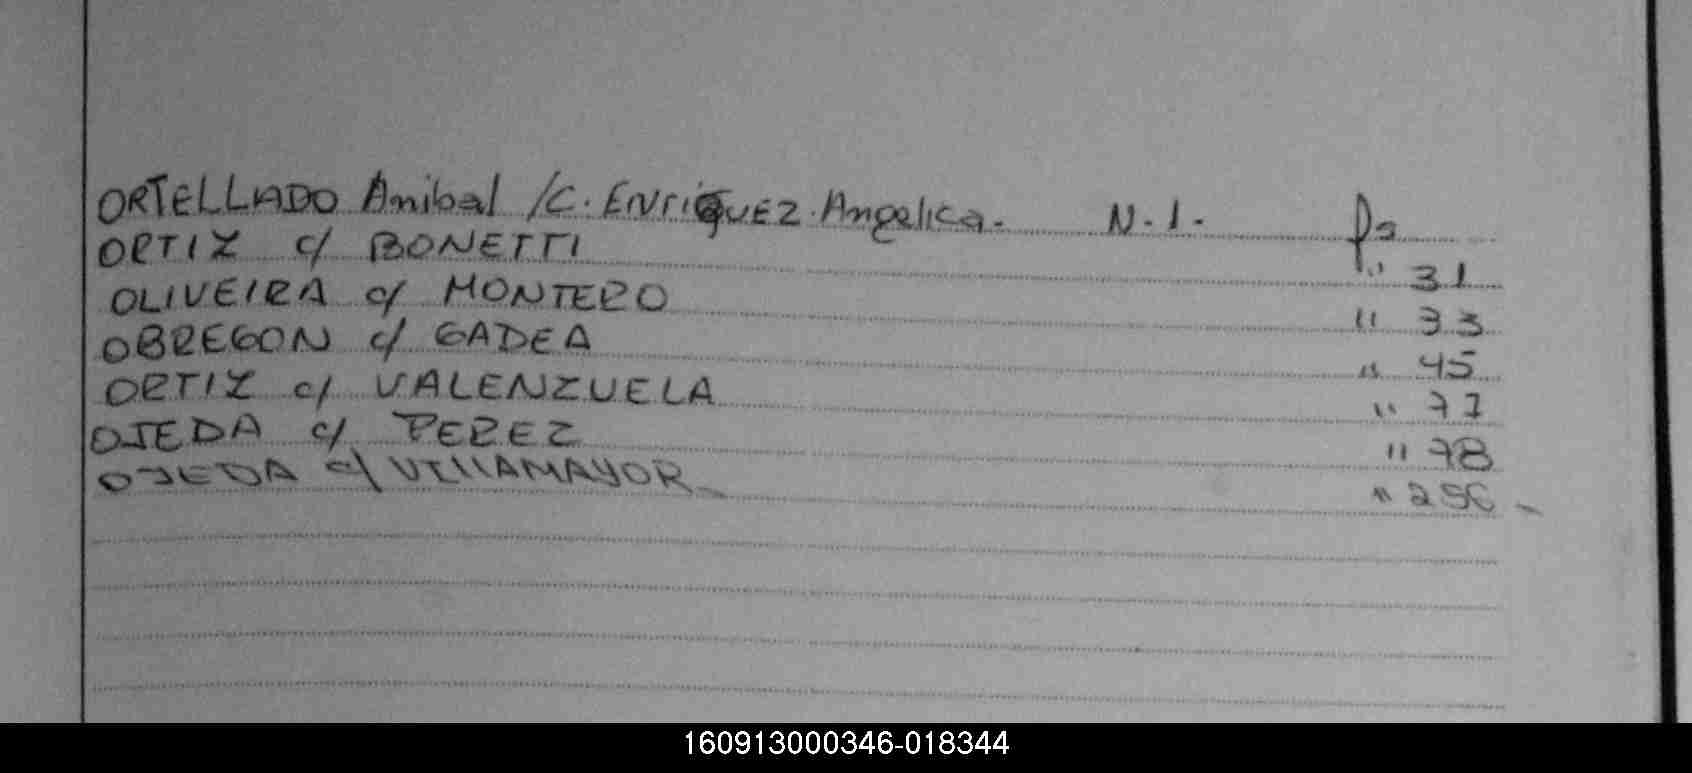 ORTELLADO Anibal /C. ENriQUEZ. Angelica. N.I. Ps
ORTIZ c/ BONETTI " 31
OLIVEIRA c/ MONTERO " 33
OBREGON c/ GADEA " 45
ORTIZ c/ VALENZUELA " 77
OJEDA c/ PEREZ " 78
OJEDA c/ VILLAMAYOR "
160913000346-018344